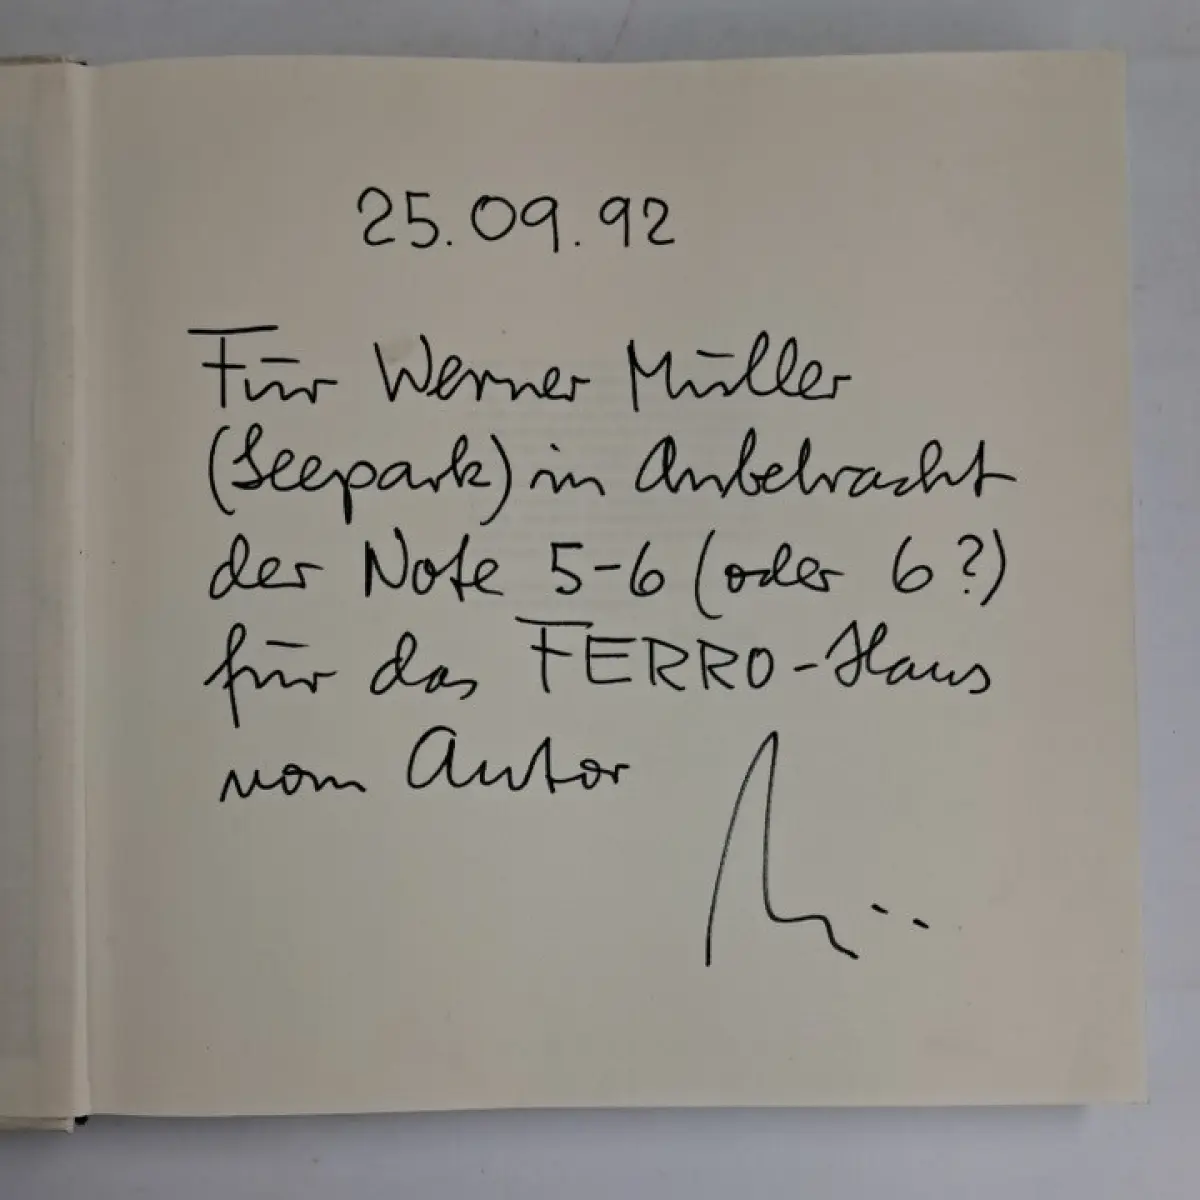 25.09.92
Für Werner Müller
(Seepark) in Anbetracht
der Note 5-6 (oder 6?)
für das FERRO-Haus
vom Autor